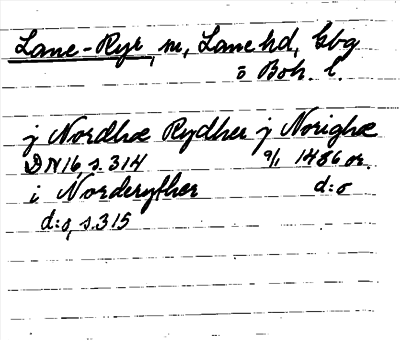 Lane-Ryr, sn, Lane hd, Gbg
o Boh. l.
j Nordhæ Rydher j Norighæ
DN 16, s. 314 a/1 1486 or.
i Norderyther d:o
d:o, s. 315